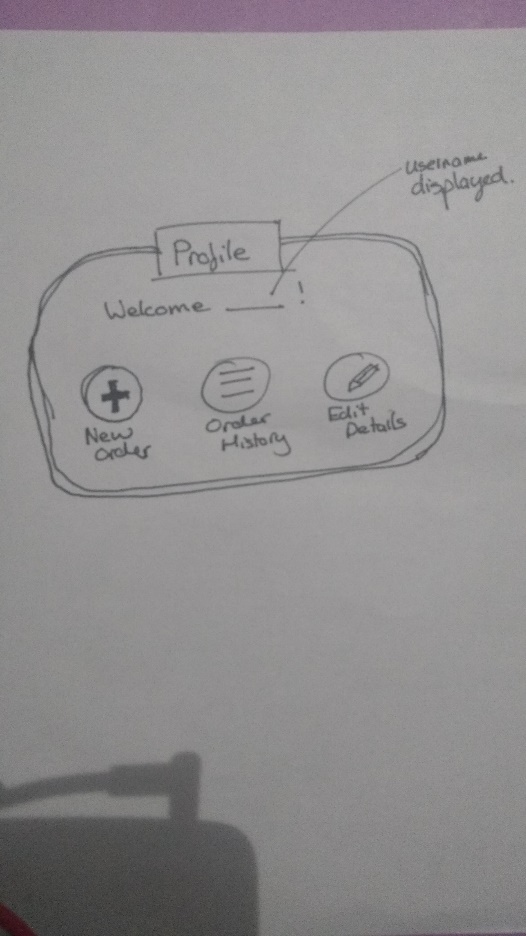 username
displayed.
Profile
Welcome ____ !
New
Order
Order
History
Edit
Details